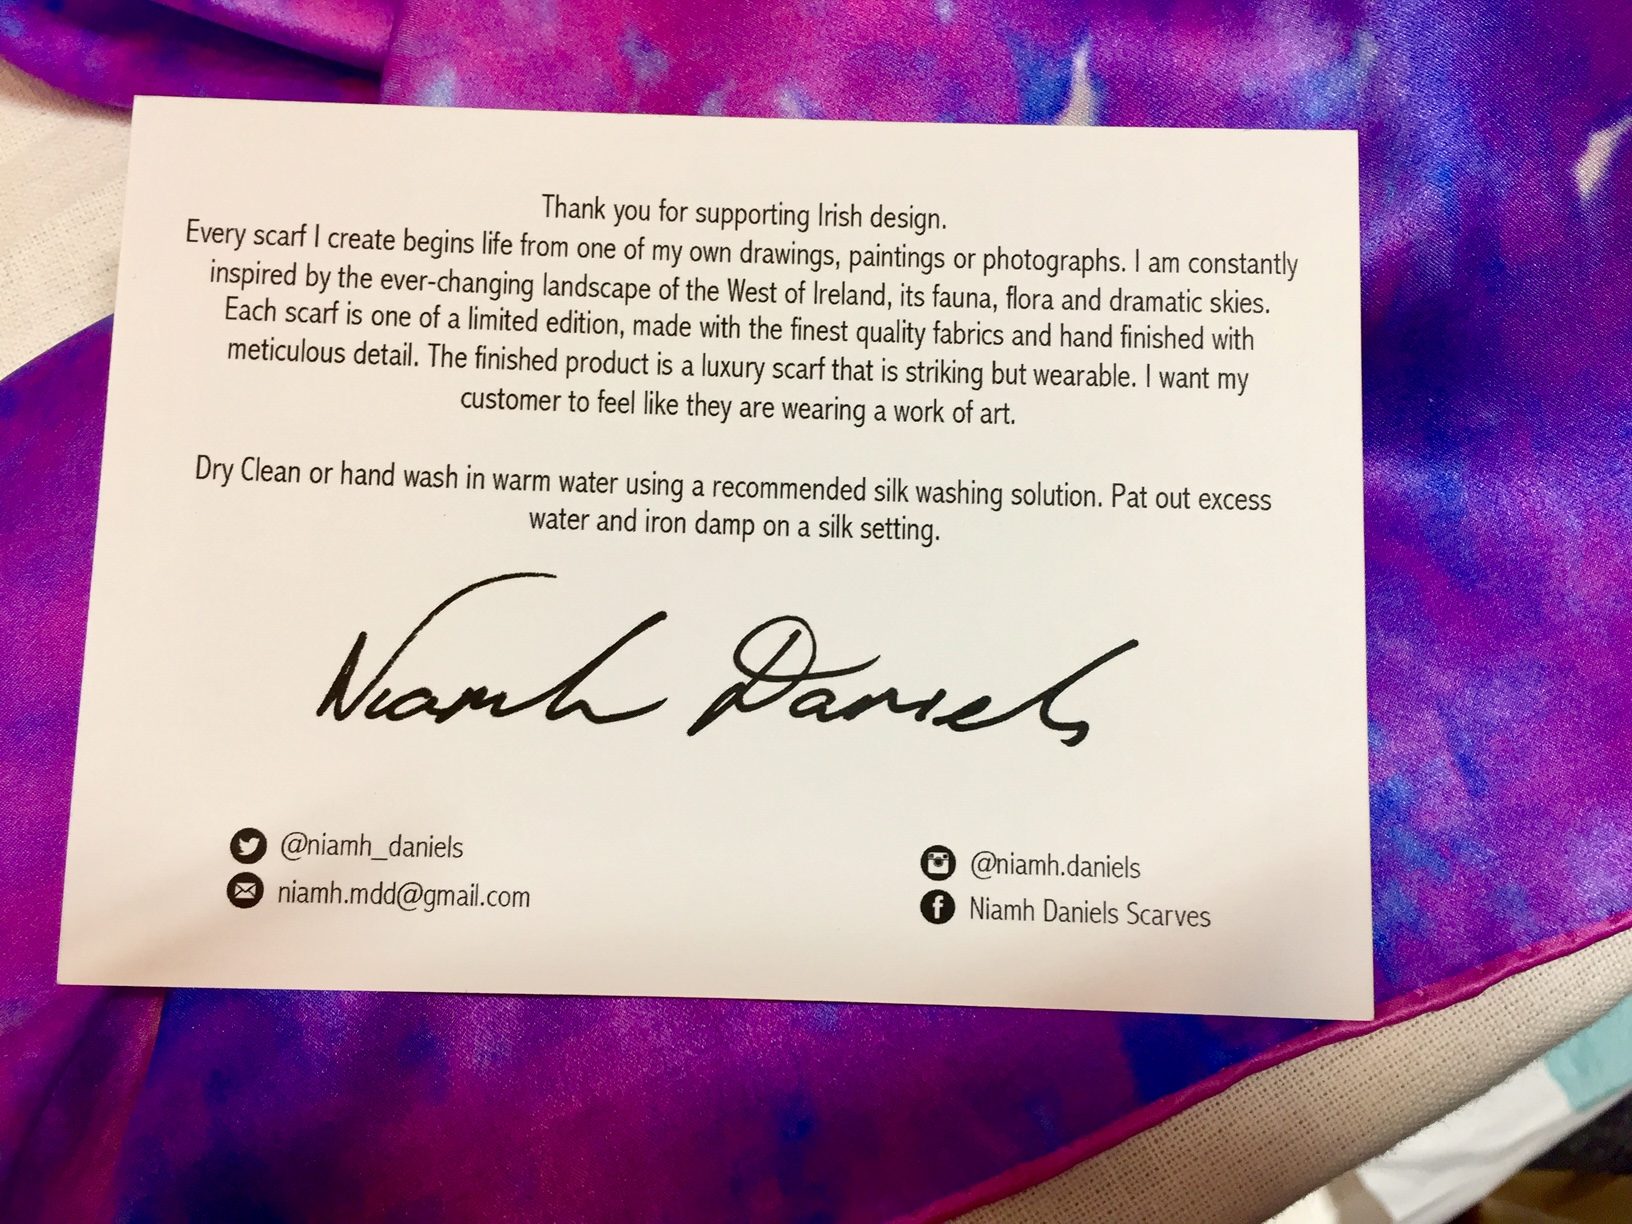 Thank you for supporting Irish design.
Every scarf I create begins life from one of my own drawings, paintings or photographs. I am constantly
inspired by the ever-changing landscape of the West of Ireland, its fauna, flora and dramatic skies.
Each scarf is one of a limited edition, made with the finest quality fabrics and hand finished with
meticulous detail. The finished product is a luxury scarf that is striking but wearable. I want my
customer to feel like they are wearing a work of art.
Dry Clean or hand wash in warm water using a recommended silk washing solution. Pat out excess
water and iron damp on a silk setting.
Niamh Daniels
@niamh_daniels
niamh.mdd@gmail.com
@niamh.daniels
Niamh Daniels Scarves